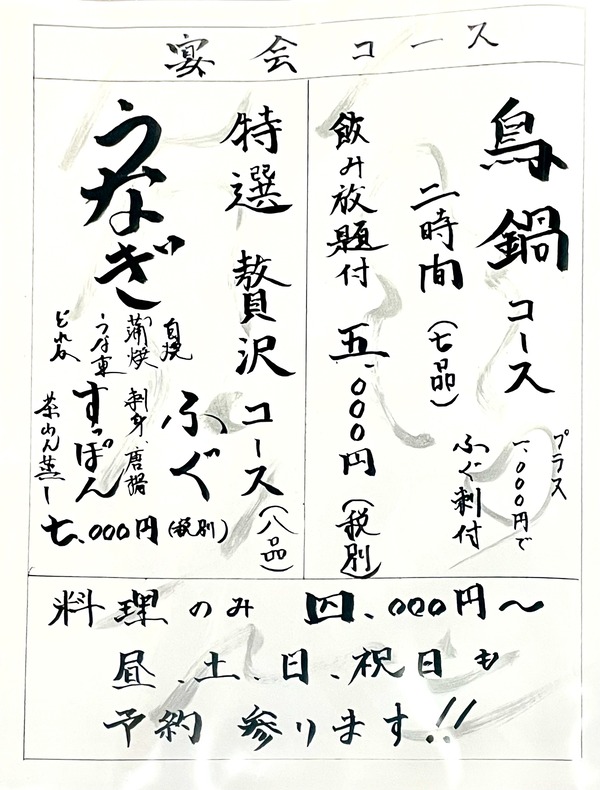 宴会コース
鳥鍋コース
プラス
一、〇〇〇円で
ふぐ刺付
二時間(七品)
飲み放題付 五、〇〇〇円(税別)
特選 贅沢コース(八品)
うなぎ
白焼
蒲焼
うな重
どれか
ふぐ
刺身、唐揚
すっぽん
茶わん蒸し
七、〇〇〇円(税別)
料理のみ 四、〇〇〇円〜
昼、土、日、祝日も
予約 参ります!!